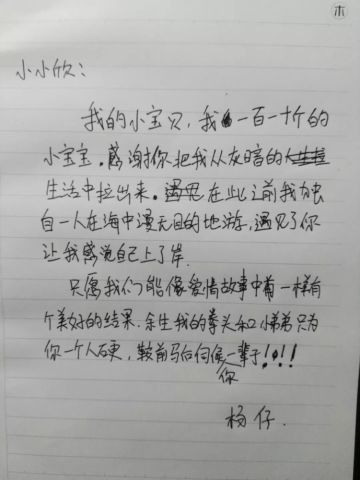 木
小小欣：
我的小宝贝，我一百一十斤的
小宝宝。感谢你把我从灰暗的
生活中拉出来。在此之前我独
自一人在海中漫无目的地游，遇见了你
让我感觉自己上了岸.
只愿我们能像爱情故事中前一样有
个美好的结果. 余生我的拳头和小弟弟只为
你一个人硬，鞍前马后伺候你一辈子！！！
杨仔.